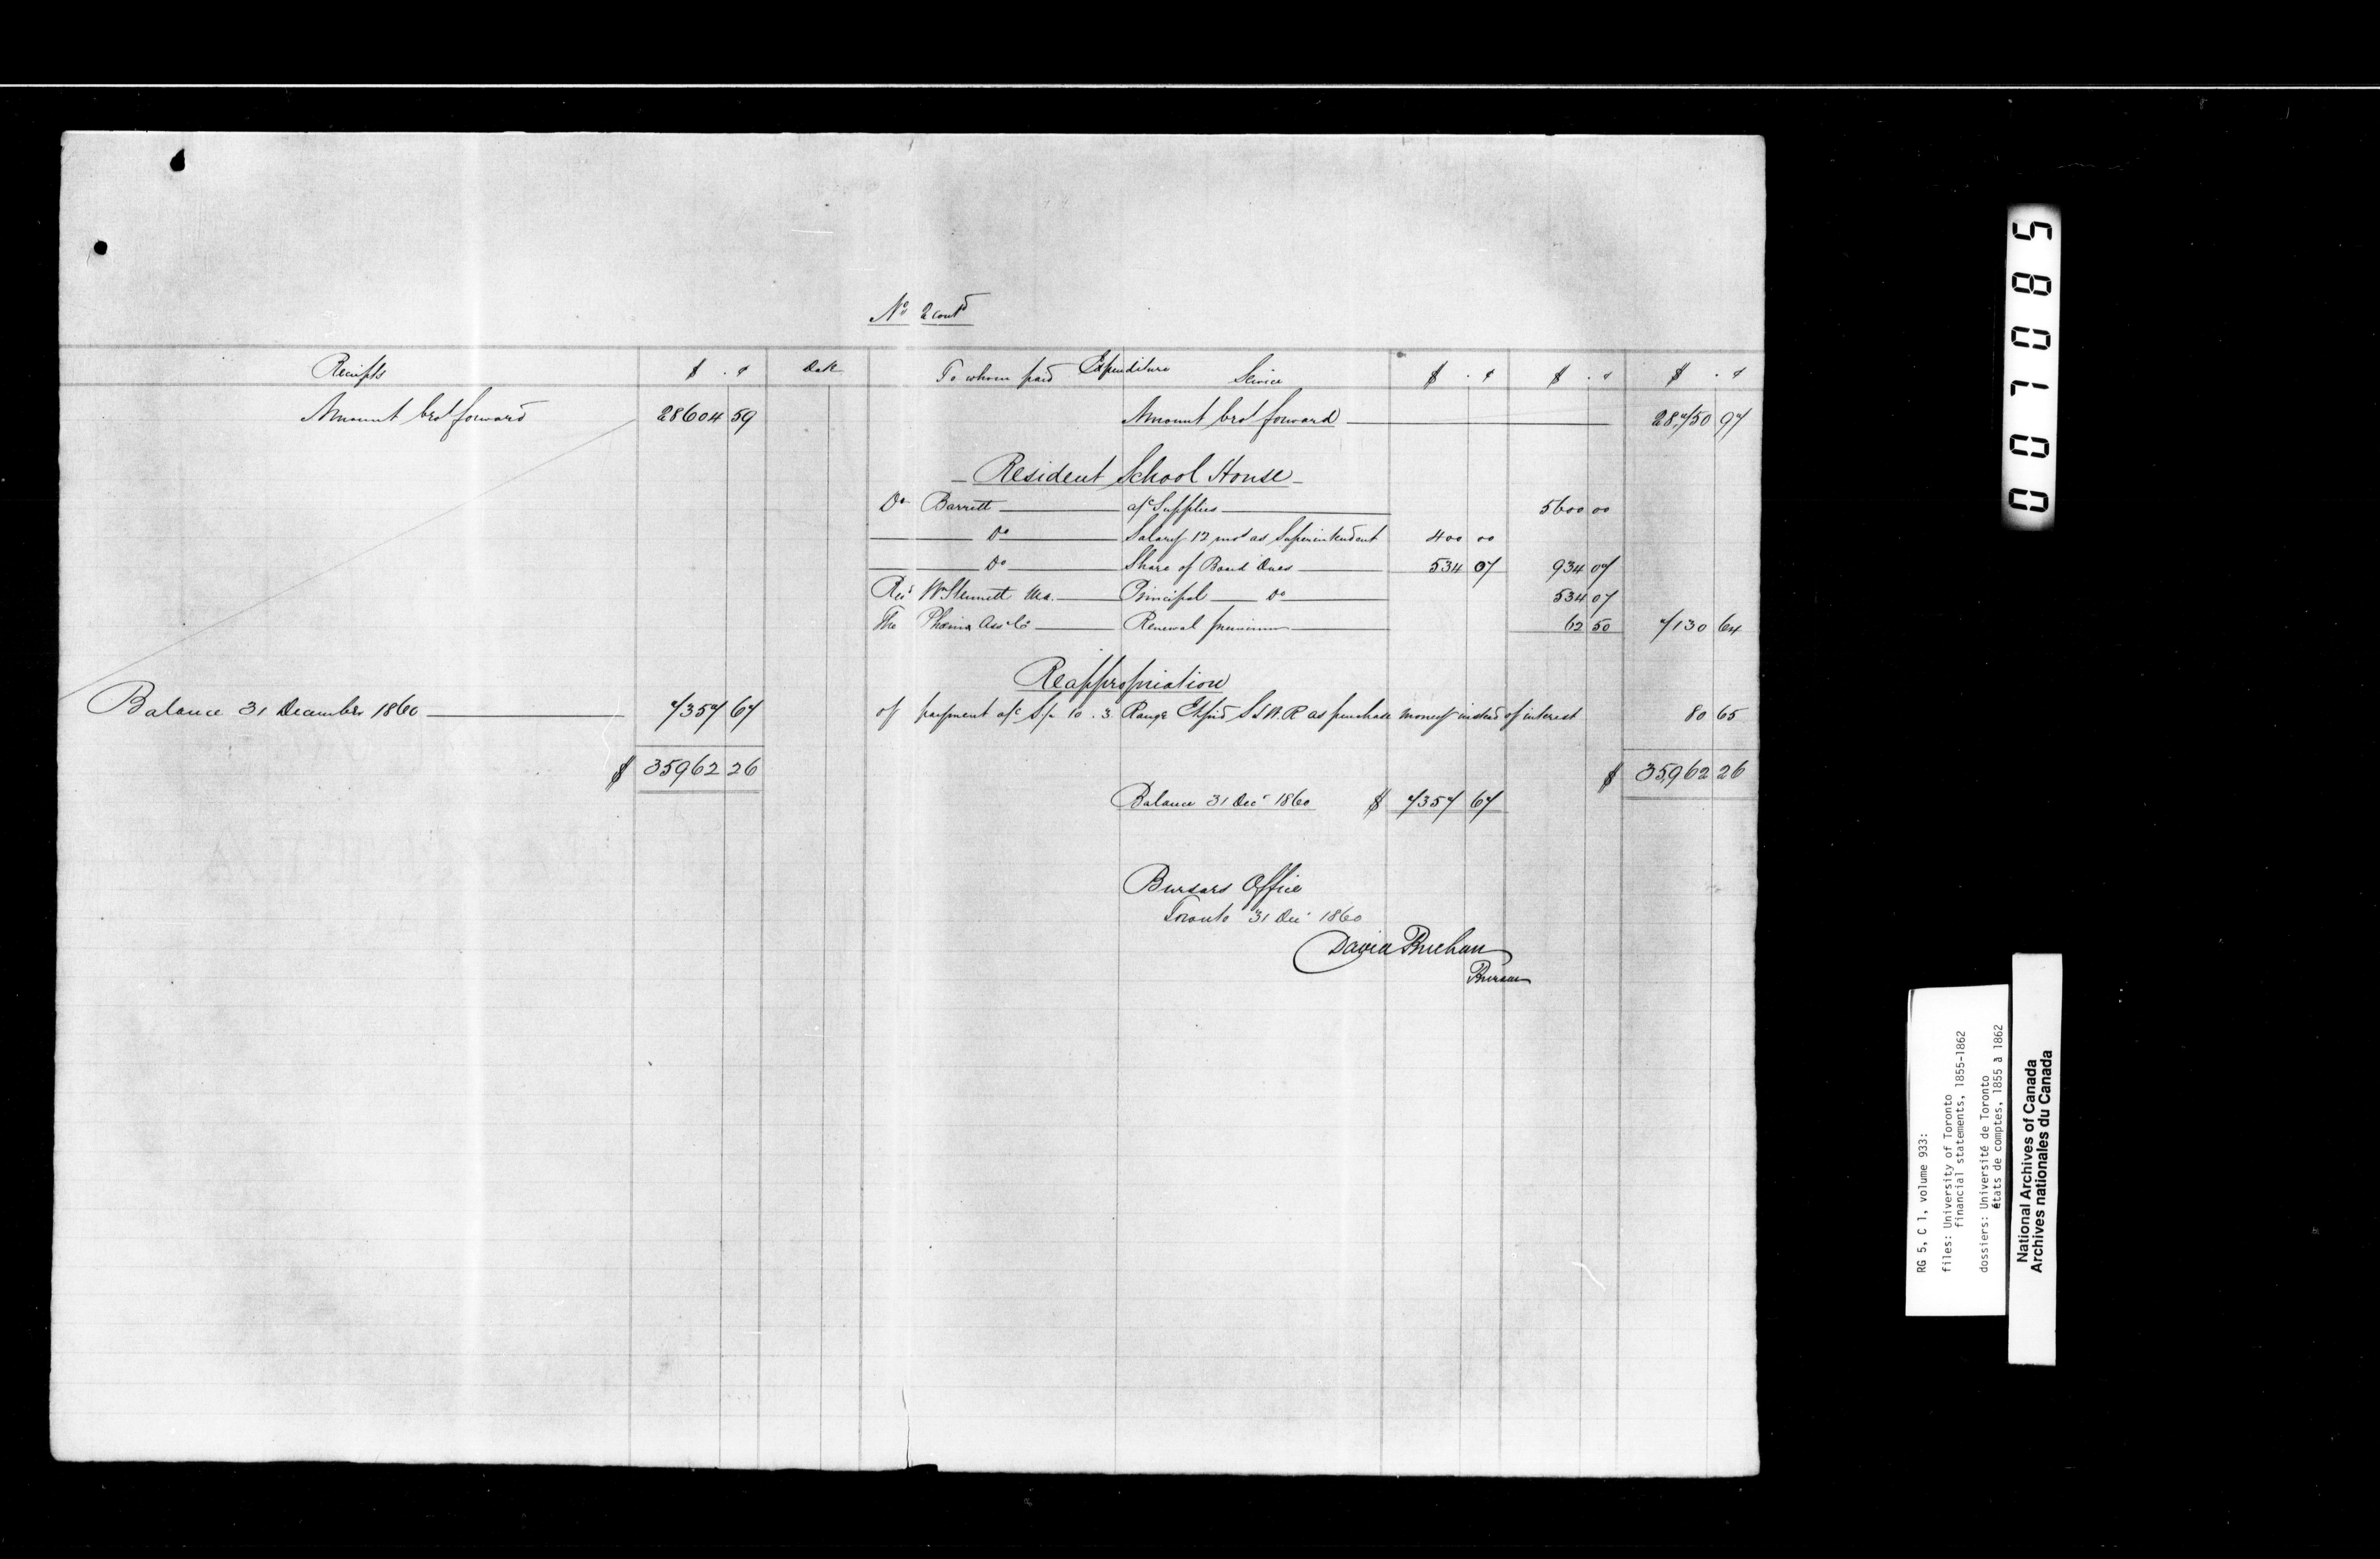 No 2 contd
Receipts $ . ¢ Date To whom paid Expenditure Service $ . ¢ $ . ¢ $ . ¢
Amount brot forward 28604 59 Amount brot forward 28,750 97
Resident School House
Barrett a/c Supplies 5600 00
Do Salary 12 mos as Superintendent 400 00
Do Share of Board Dues 534 07 934 07
Revd W Stennett M.A. Principal Do 534 07
The Phœnix Assce Co Renewal premium 62 50 7130 64
Reappropriation
Balance 31 December 1860 7357 67 of payment a/c 10 . 3 Range as purchase money instead of interest 80 65
$ 35962 26 $ 35,962 26
Balance 31 Decr 1860 $ 7357 67
Bursars Office
Toronto 31 Dec 1860
David Buchan
Bursar
007085
RG 5, C 1, volume 933:
files: University of Toronto
financial statements, 1855-1862
dossiers: Université de Toronto
états de comptes, 1855 à 1862
National Archives of Canada
Archives nationales du Canada